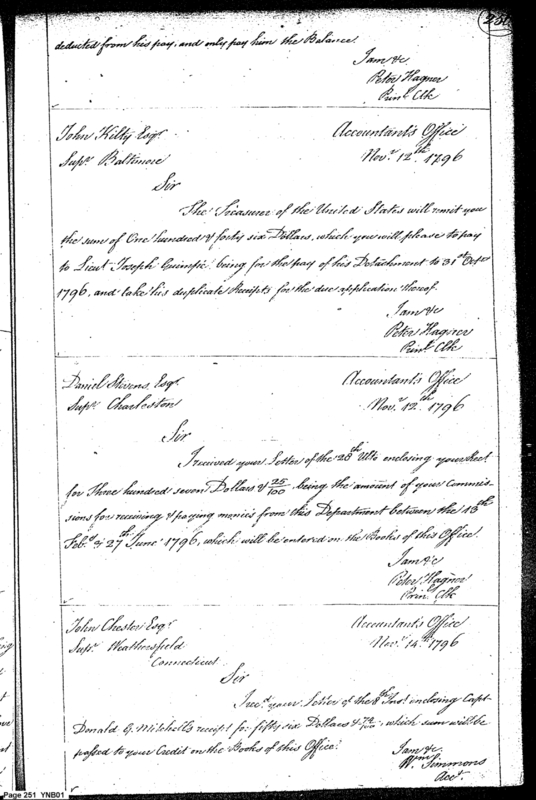 251
deducted from his pay, and only pay him the Balance.
I am &c
Peter Hagner
Prinl. Clk
John Kilty Esqr.
Accountant's Office
Supr. Baltimore
Novr. 12th. 1796
Sir
The Treasurer of the United States will remit you
the sum of One hundred & forty six Dollars, which you will please to pay
to Lieut. Joseph being for the pay of his Detachment to 31st Octr
1796, and take his duplicate Receipts for the due application thereof.
I am &c
Peter Hagner
Prinl. Clk
Daniel Stevens Esqr.
Accountant's Office
Supr. Charleston
Novr. 12th. 1796
Sir
I received your Letter of the 28th Ulto enclosing your Rect.
for Three hundred seven Dollars & 25/100 being the amount of your Commis-
sions for receiving & paying monies from this Department between the 18th
Feby. & 27th June 1796, which will be entered on the Books of this Office.
I am &c
Peter Hagner
Prinl. Clk
John Chester Esqr.
Accountant's Office
Supr. Weathersfield
Novr. 14th. 1796
Connecticut
Sir
I recd. your Letter of the 8th Inst. enclosing Capt
Donald G. Mitchell's receipt for fifty six Dollars & 72/100, which sum will be
passed to your Credit on the Books of this Office.
I am &c.
Wm. Simmons
Acct.
Page 251 YNB01